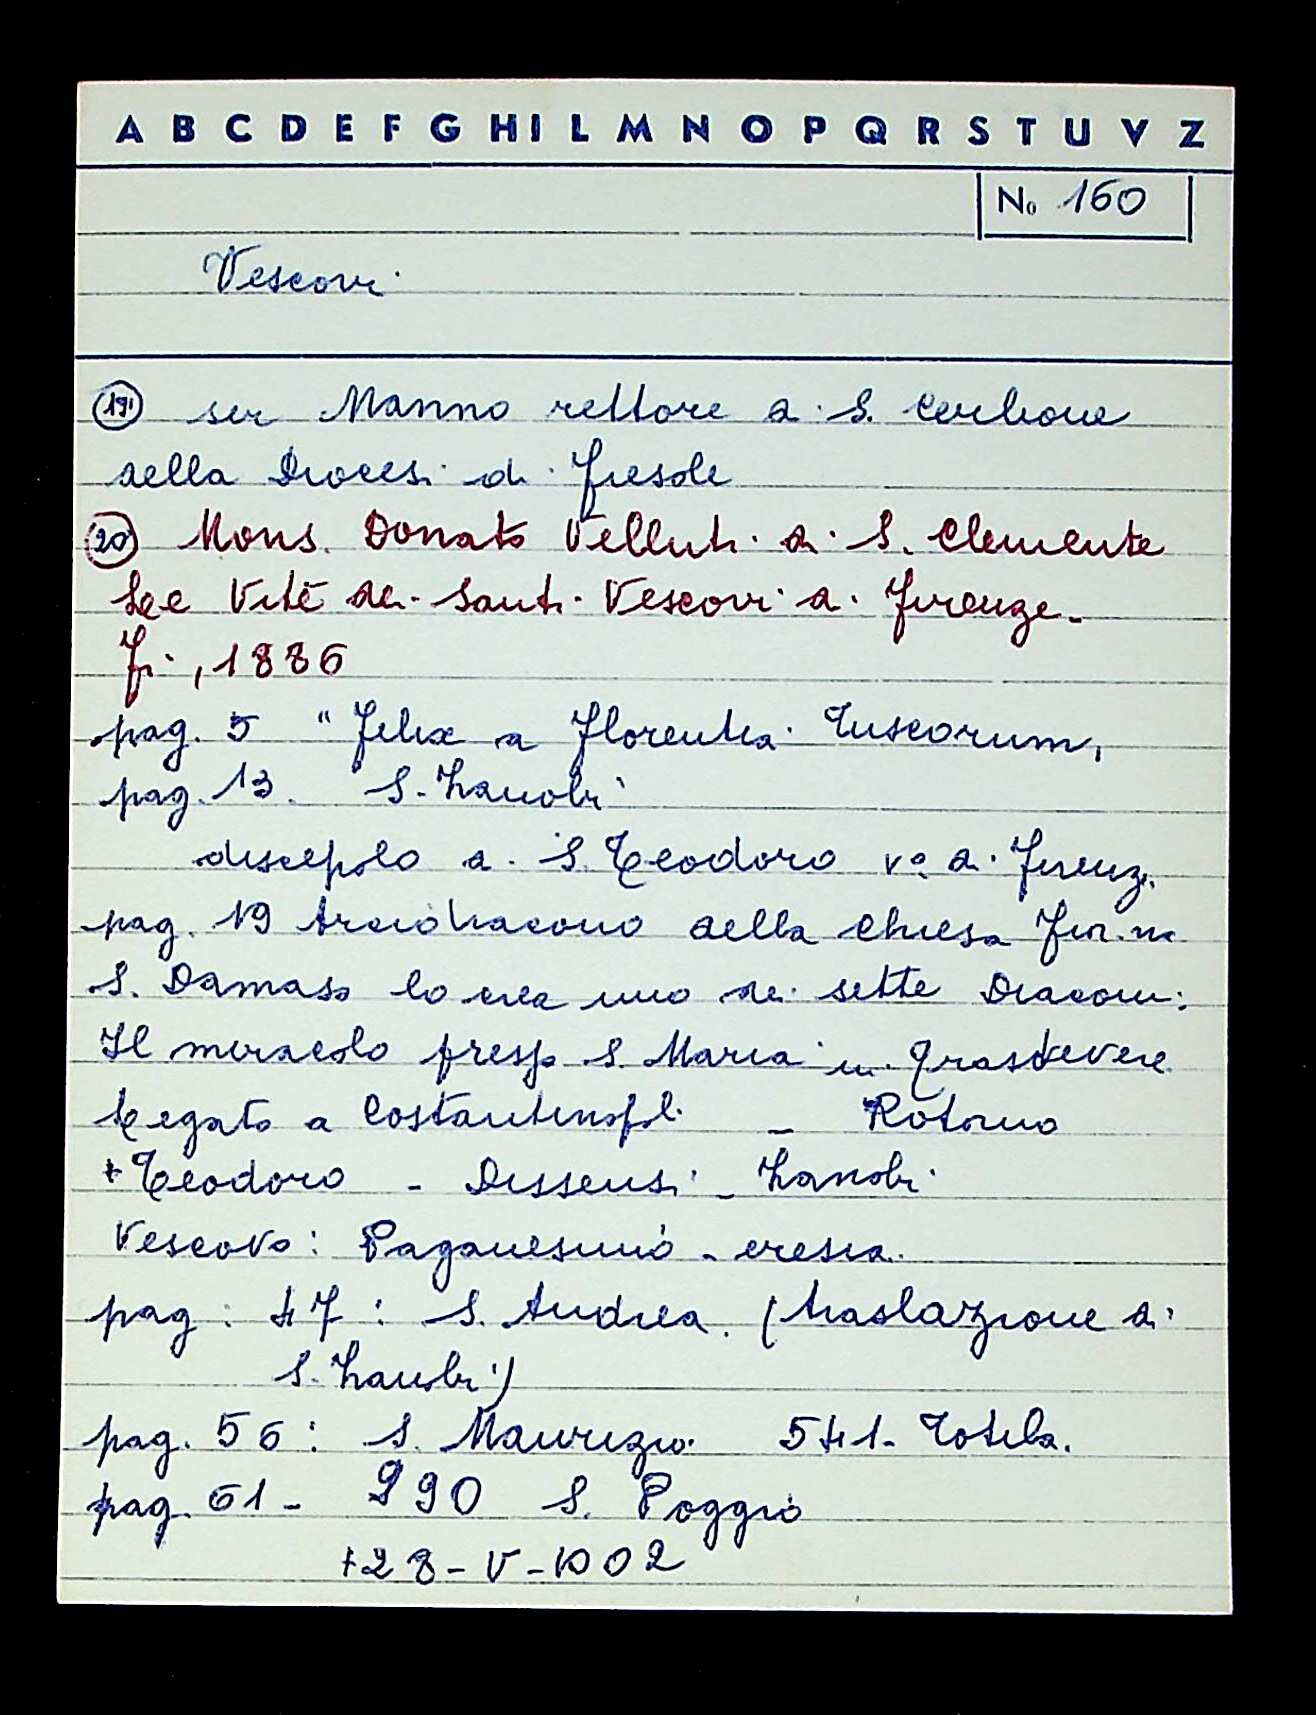 A B C D E F G H I L M N O P Q R S T U V Z
No 160
Vescovi
19) ser Manno rettore di S. Cerbone
della Diocesi di Fiesole
20) Mons. Donato Velluti di S. Clemente
Le Vite dei Santi Vescovi di Firenze.
Fi, 1886
pag. 5 "Felix a Florentia Tuscorum,
pag. 13. S. Zanobi
discepolo di S. Teodoro vo di Firenz.
pag. 19 Arcidiacono della Chiesa Fior.na
S. Damaso lo crea uno dei sette Diaconi:
Il miracolo presso S. Maria in Trastevere
Legato a Costantinopoli - Ritorno
+ Teodoro - Dissensi - Zanobi
Vescovo: Paganesimo - eresia.
pag: 47: S. Andrea. (traslazione di
S. Zanobi)
pag. 56: S. Maurizio 541 - Totila.
pag. 61 - 990 S. Poggio
+ 28 - V - 1002